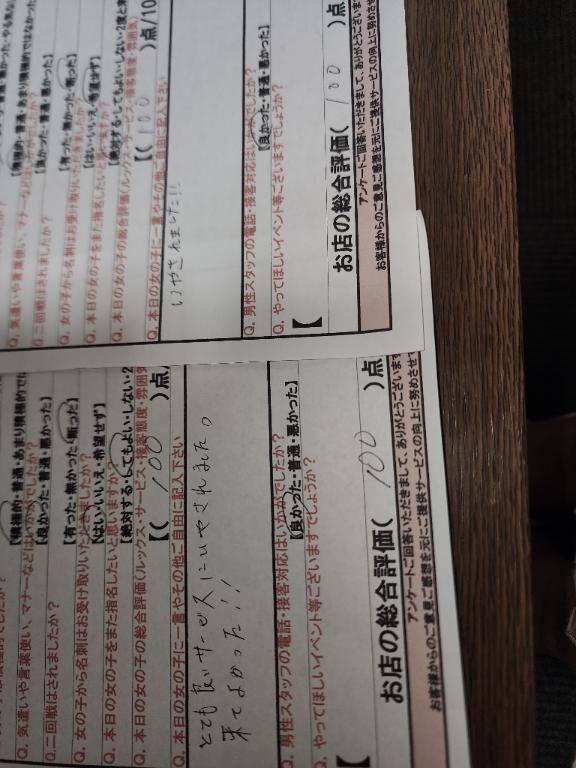 Q. 気遣いや言葉使い、マナーなどはいかがでしたか？
Q.二回戦はされましたか？
【良かった・普通・悪かった】
Q. 女の子から名刺はお受け取りいただきましたか？
【有った・無かった・断った】
Q. 本日の女の子をまた指名したいと思いますか？
【はい・いいえ・希望せず】
Q. 本日の女の子の総合評価(ルックス・サービス・接客態度・雰囲気)
【( 100 )点/10
Q. 本日の女の子に一言やその他ご自由に記入下さい
いやされました!!
Q. 男性スタッフの電話・接客対応はいかがでしたか？
【良かった・普通・悪かった】
Q. やってほしいイベント等ございますでしょうか？
【
お店の総合評価( 100 )点
アンケートご回答いただきまして、ありがとうございま
お客様からのご意見ご感想を元にご提供サービスの向上に努めさせ
Q. 気遣いや言葉使い、マナーなどはいかがでしたか？
【積極的・普通・あまり積極的で
Q.二回戦はされましたか？
【良かった・普通・悪かった】
Q. 女の子から名刺はお受け取りいただきましたか？
【有った・無かった・断った】
Q. 本日の女の子をまた指名したいと思いますか？
【はい・いいえ・希望せず】
Q. 本日の女の子の総合評価(ルックス・サービス・接客態度・雰囲気
【絶対する・してもよい・しない・2
【( 100 )点
Q. 本日の女の子に一言やその他ご自由に記入下さい
とても良いサービスにいやされました。
来てよかった!!
Q. 男性スタッフの電話・接客対応はいかがでしたか？
【良かった・普通・悪かった】
Q. やってほしいイベント等ございますでしょうか？
【
お店の総合評価( 100 )点
アンケートご回答いただきまして、ありがとうございます
お客様からのご意見ご感想を元にご提供サービスの向上に努めさせ